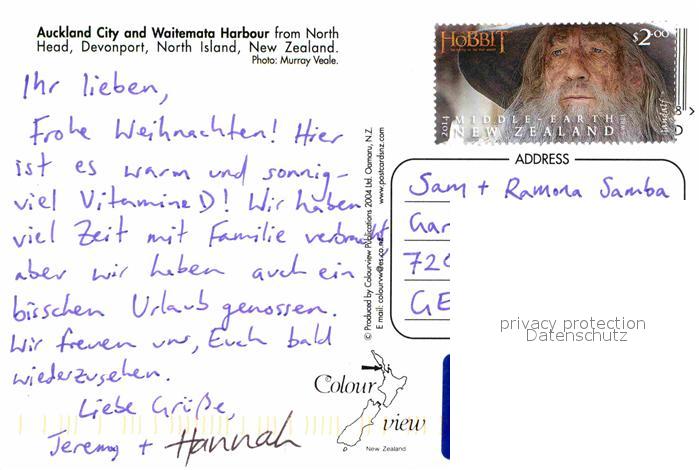 Auckland City and Waitemata Harbour from North
Head, Devonport, North Island, New Zealand.
Photo: Murray Veale.
Ihr lieben,
Frohe Weihnachten! Hier
ist es warm und sonnig-
viel Vitamine D! Wir haben
viel Zeit mit Familie verbracht,
aber wir haben auch ein
bisschen Urlaub genossen.
Wir freuen uns, Euch bald
wiederzusehen.
Liebe Grüße,
Jeremy + Hannah
© Produced by Colourview Publications 2004 Ltd. Oamaru, N.Z.
E mail: colourvw@es.co.nz www.postcardsnz.com
Colour
view
New Zealand
THE HOBBIT
$2.00
2014 MIDDLE-EARTH
NEW ZEALAND
Gandalf
ADDRESS
Sam + Ramona Samba
Gar
72
GE
privacy protection
Datenschutz